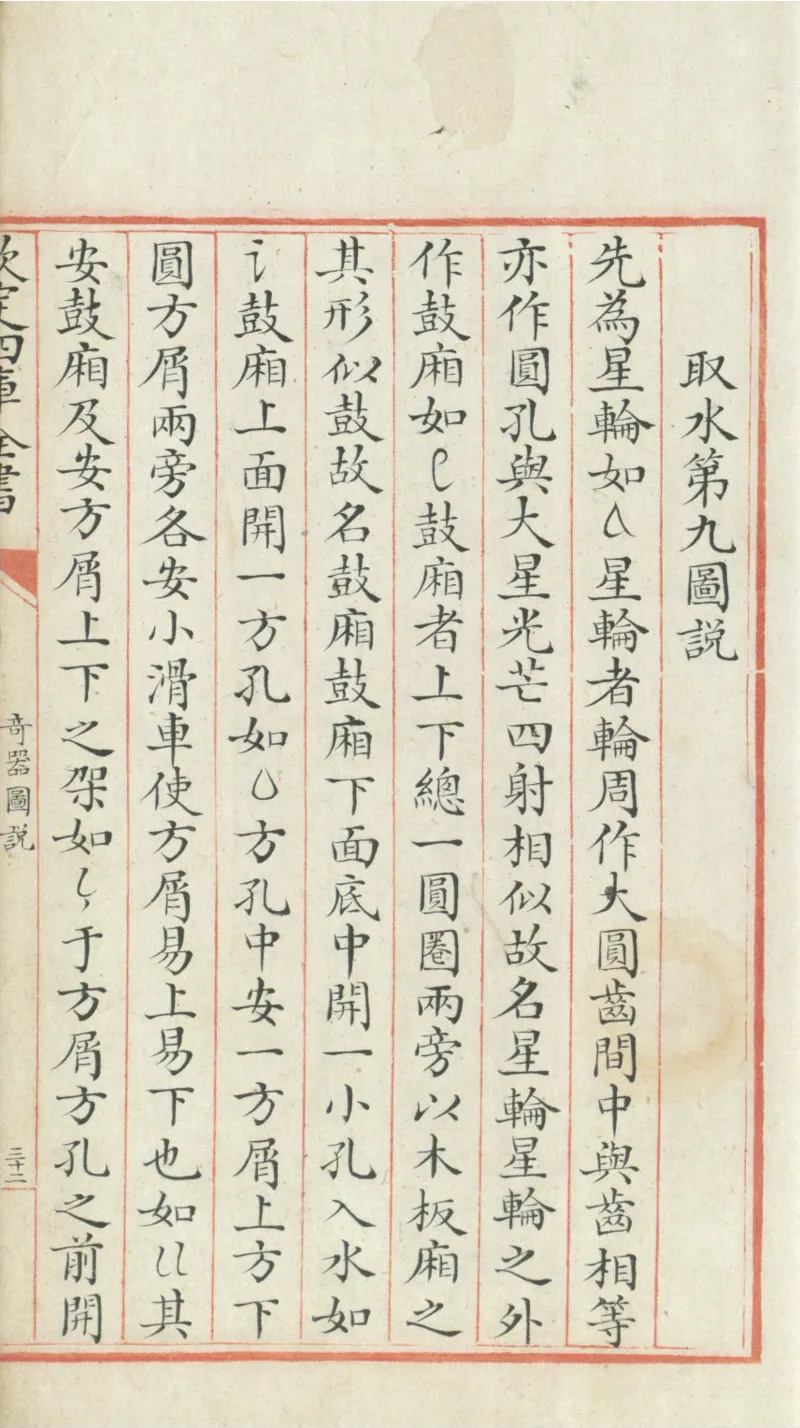 取水第九圖説
先為星輪如星輪者輪周作大圓齒間中與齒相等
亦作圓孔與大星光芒四射相似故名星輪星輪之外
作鼓廂如鼓廂者上下總一圓圈兩旁以木板廂之
其形似鼓故名鼓廂鼓廂下面底中開一小孔入水如
鼓廂上面開一方孔如方孔中安一方屑上方下
圓方屑兩旁各安小滑車使方屑易上易下也如其
安鼓廂及安方屑上下之架如于方屑方孔之前開
欽定四庫全書
奇器圖説
三十二